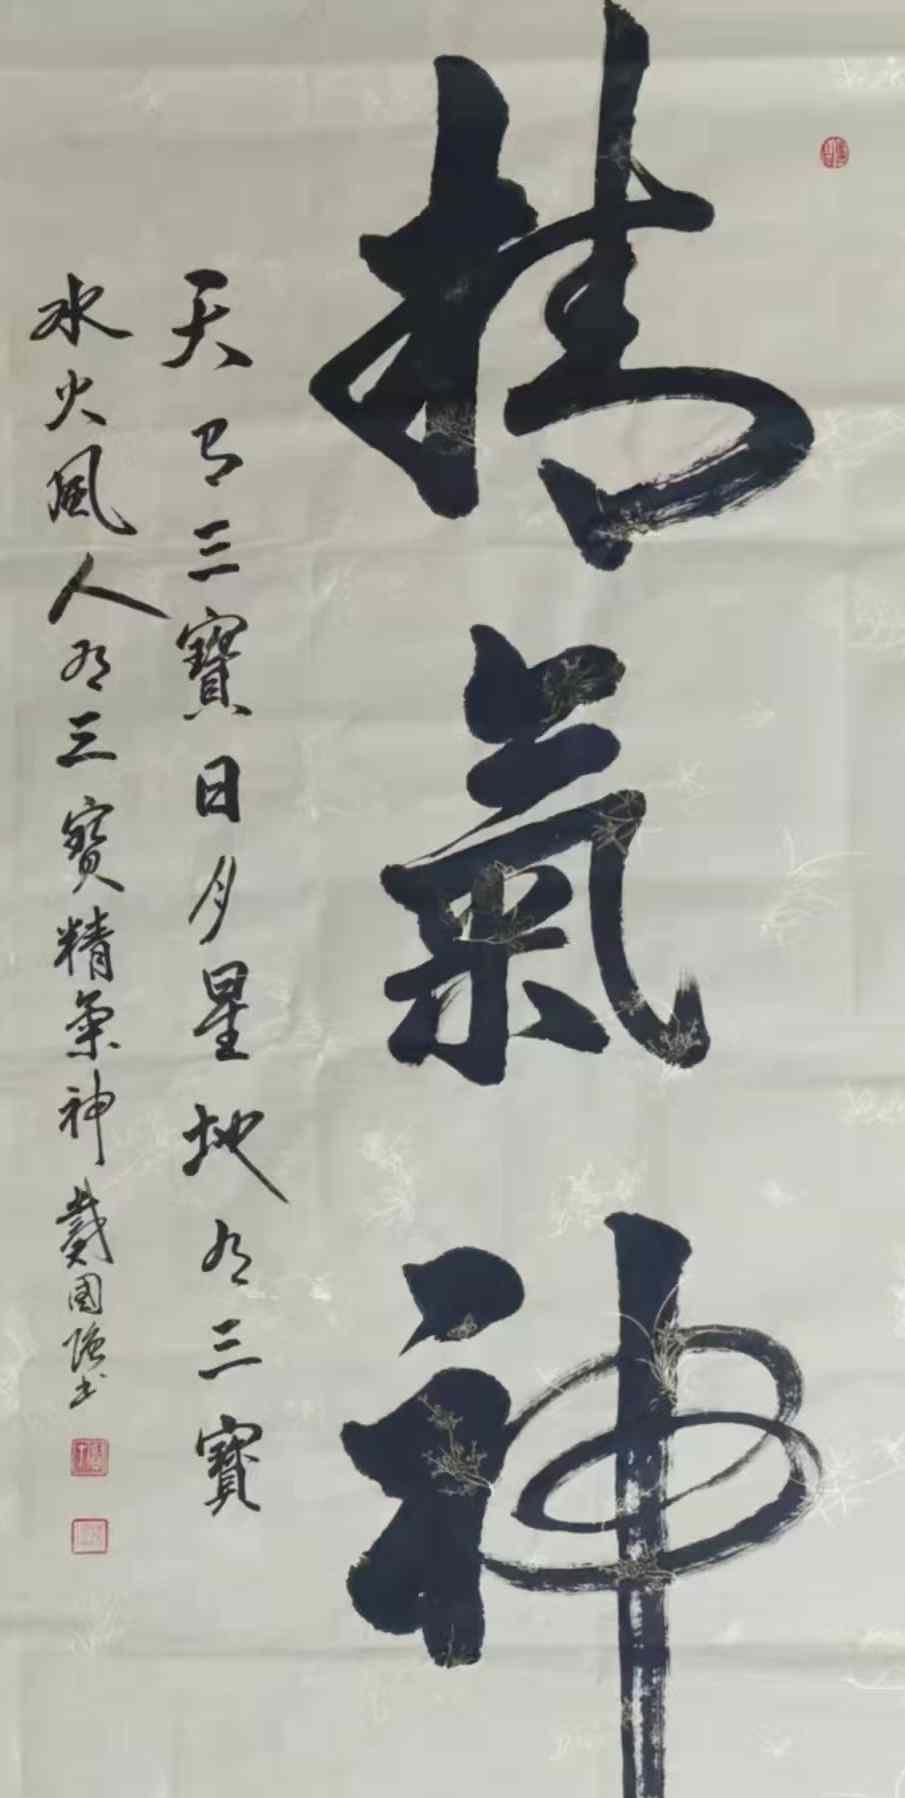 精氣神
天有三寶日月星地有三寶
水火風人有三寶精氣神戴國強书